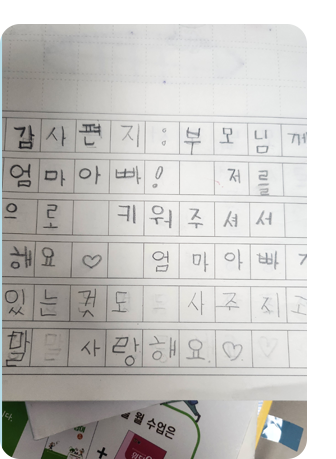 감사편지:부모님께
엄마아빠! 저를
으로 키워주셔서
해요♡ 엄마아빠
있는 것도 사주지
말 사랑해요.♡
월 수업은